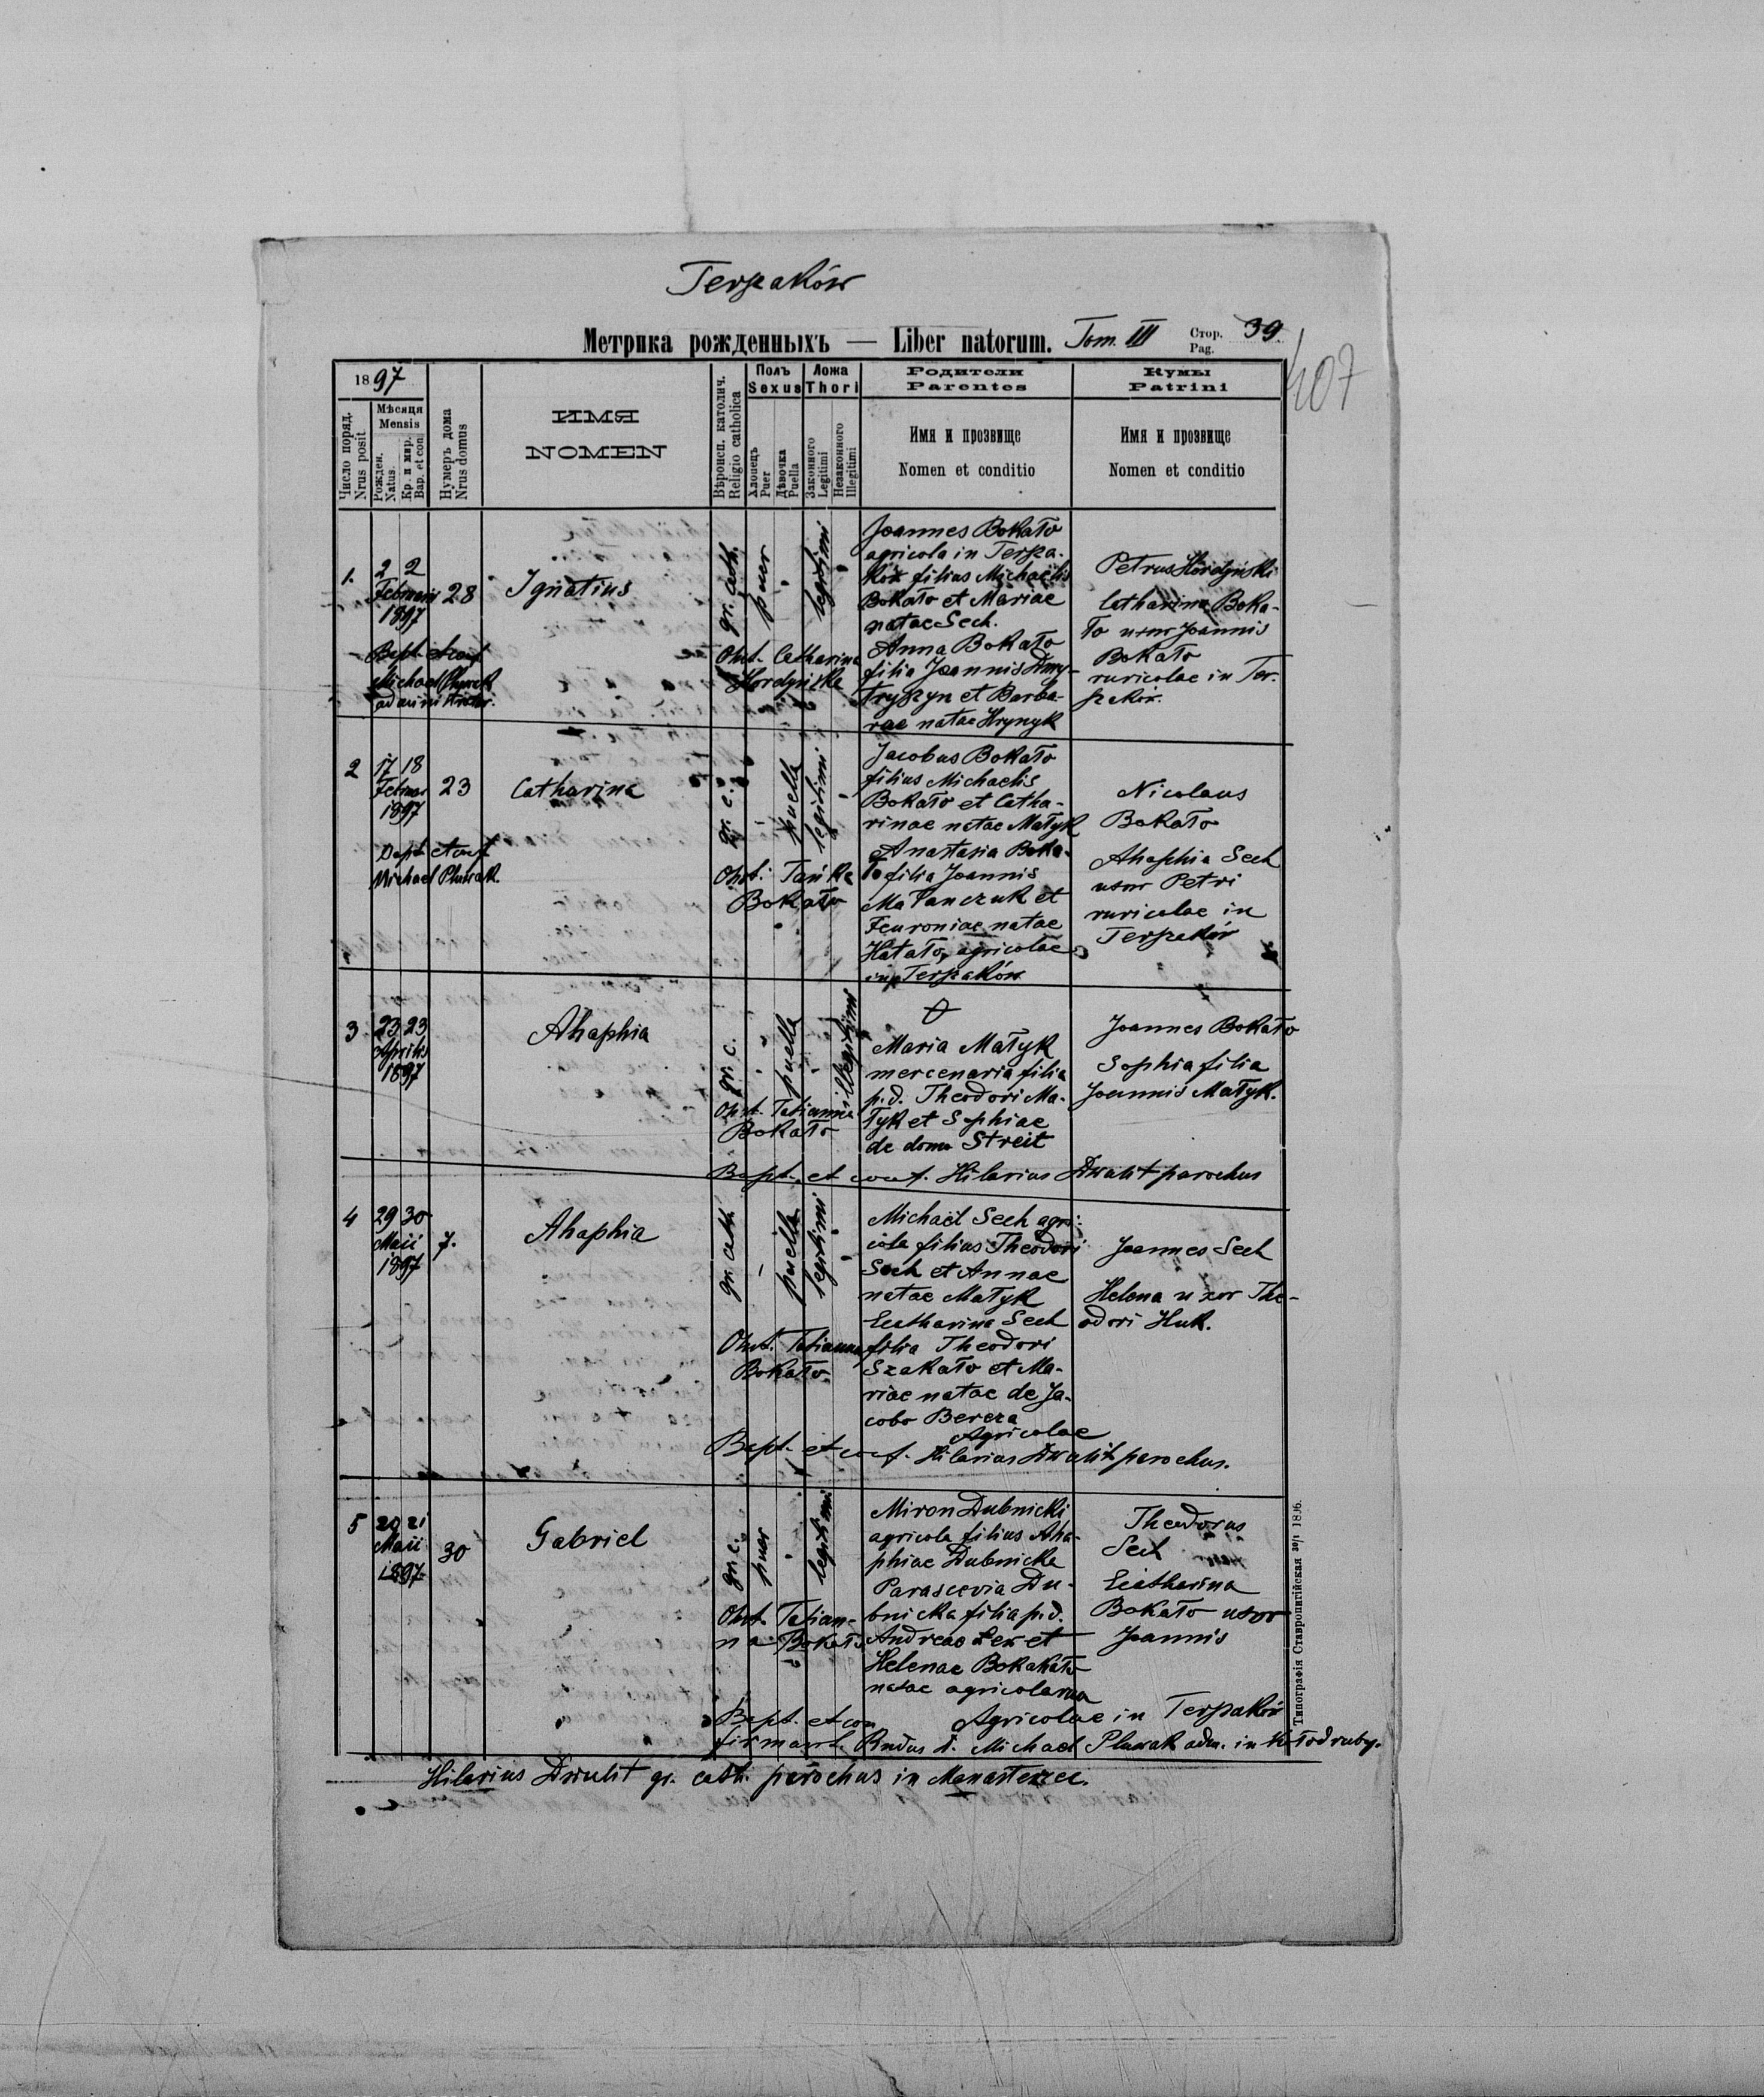 Terpaków
Метрика рожденныхъ — Liber natorum. Tom. III Стор. Pag. 39
407
1897
Число поряд.
Nrus posit.
Мѣсяця
Mensis
Рожден.
Natus.
Кр. и мѵр.
Bap. et con.
Нумеръ дома
Nrus domus
ИМЯ
NOMEN
Вѣроисп. католич.
Religio catholica
Полъ
Sexus
Хлопецъ
Puer
Дѣвочка
Puella
Ложа
Thori
Законного
Legitimi
Незаконного
Illegitimi
Родители
Parentes
Имя и прозвище
Nomen et conditio
Кумы
Patrini
Имя и прозвище
Nomen et conditio
1. 2 2
Februarii
1897
28
Ignatius
gr. cath.
puer
legitimi
Joannes Bokało
agricola in Terpa-
ków filius Michaelis
Bokało et Mariae
natae Sech.
Anna Bokało
filia Joannis Dmy-
tryszyn et Barba-
rae natae Hrynyk
Petrus Hordyński
Catharina Boka-
ło uxor Joannis
Bokało
ruricolae in Ter-
paków.
Bapt. et conf.
Michael
administrator.
Obst. Catharina
Hordyńska
2 17 18
Februar
1897
23
Catharina
gr. c.
puella
legitimi
Jacobus Bokało
filius Michaelis
Bokało et Catha-
rinae natae Matyk
Anastasia Boka-
ło filia Joannis
Małanczuk et
Feuroniae natae
Hatało, agricolae
in Terpaków
Nicolaus
Bokało
Ahaphia Sech
uxor Petri
ruricolae in
Terpaków
Bapt. et conf.
Michael Pluwak.
Obst. Tańka
Bokało
3 23 23
Aprilis
1897
Ahaphia
gr. c.
puella
illegitimi
Maria Matyk
mercenaria filia
p.d. Theodori Ma-
tyk et Sophiae
de domo Streit
Joannes Bokało
Sophia filia
Joannis Matyk.
Obst. Tatianna
Bokało
Bapt. et conf. Hilarius Dwulit parochus
4 29 30
Maii
1897
7.
Ahaphia
gr. cath
puella
legitimi
Michaël Sech agri-
cola filius Theodori
Sech et Annae
natae Matyk
Ecatharina Sech
filia Theodori
Szakało et Ma-
riae natae de Ja-
cobo Bereza
Agricolae
Joannes Sech
Helena uxor The-
odori Huk.
Obst. Tatianna
Bokało.
Bapt. et conf. Hilarius Dwulit parochus.
5 20 21
Maii
1897
30
Gabriel
gr. c.
puer
legitimi
Miron Dubnicki
agricola filius Aha-
phiae Dubnicka
Parascevia Du-
bnicka filia p.d.
Andreae et
Helenae
natae agricolarum
Agricolae in Terpaków
Theodorus
Sech
Ecatharina
Bokało uxor
Joannis
Obst. Tatian-
na Bokało
Bapt. et con
firmavit Rndus d. Michael Pluwak adm. in Kołodruby.
Hilarius Dwulit gr. cath. parochus in Manasterzec.
Типографія Ставропигійская 1896.